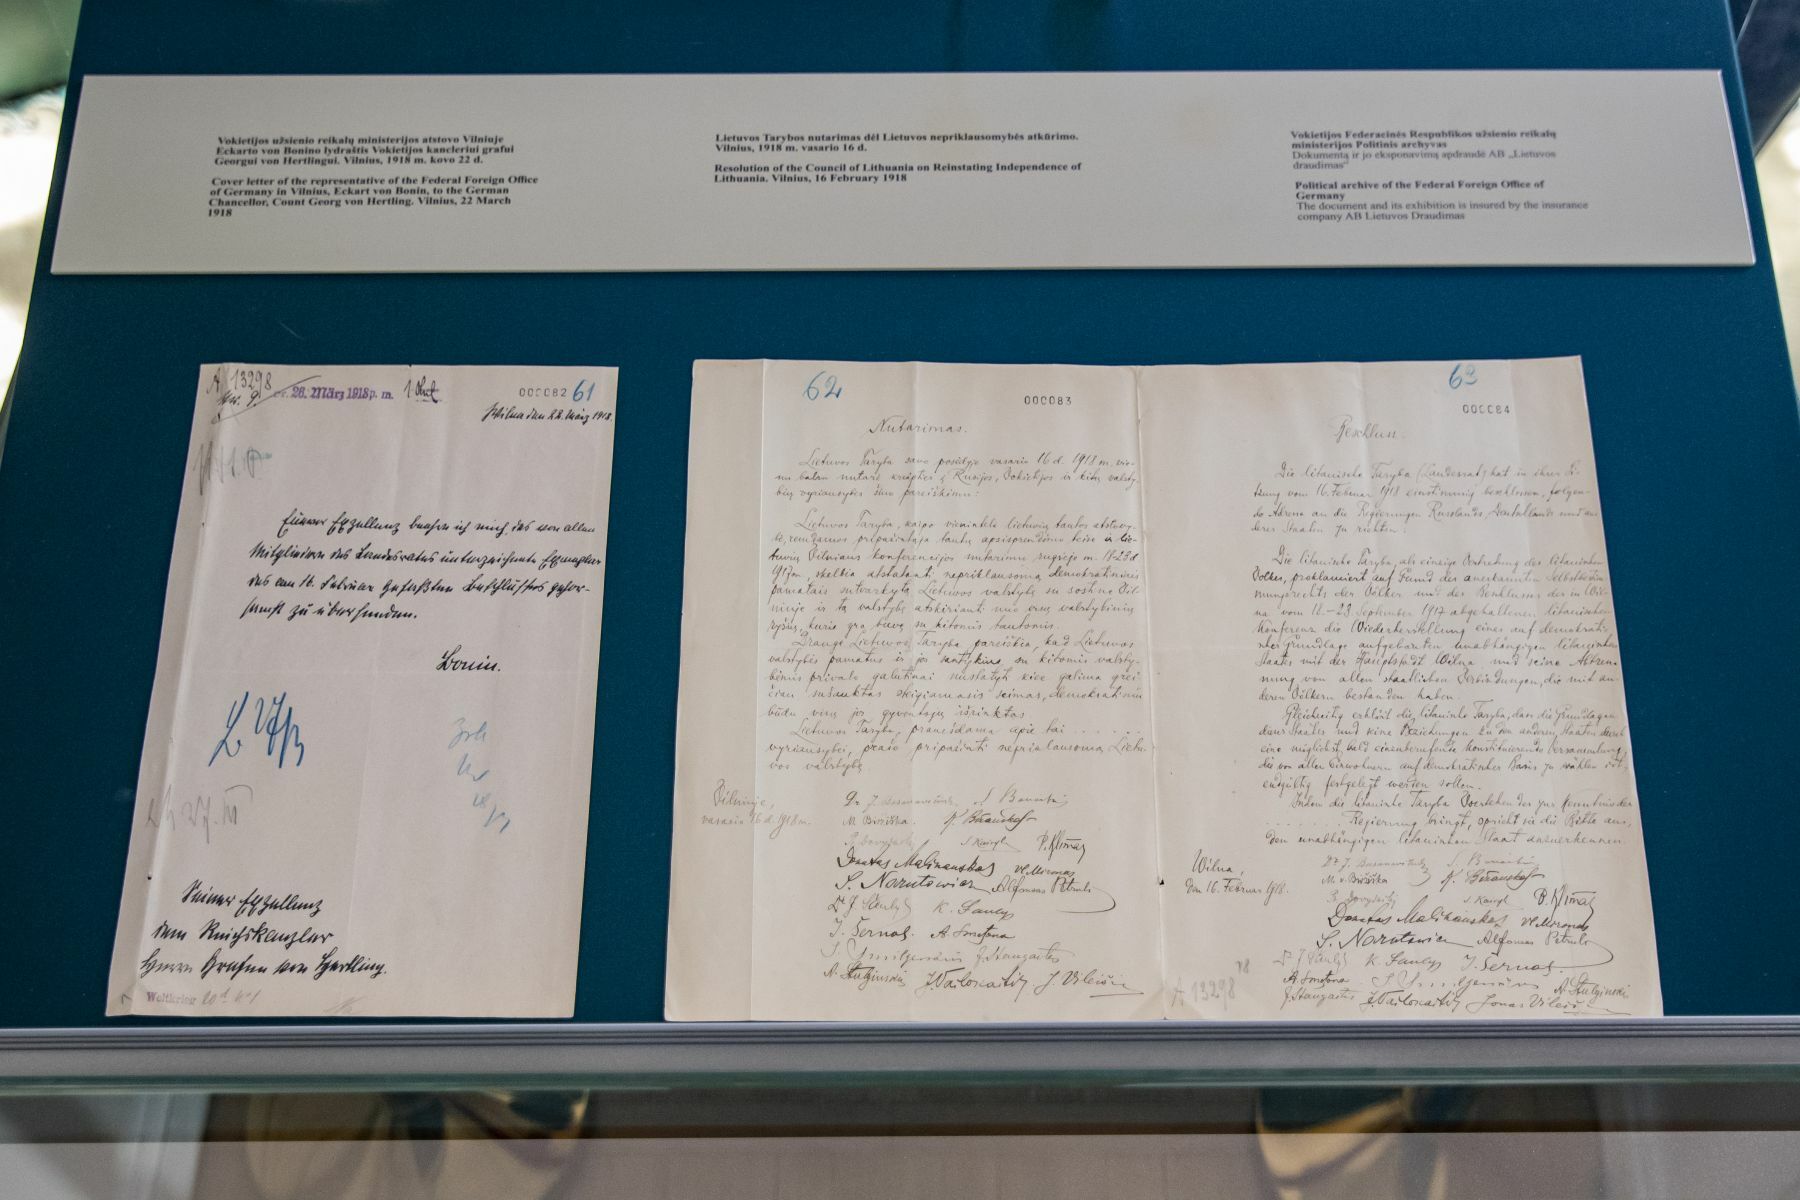 Vokietijos užsienio reikalų ministerijos atstovo Vilniuje
Eckarto von Bonino lydraštis Vokietijos kancleriui grafui
Georgui von Hertlingui. Vilnius, 1918 m. kovo 22 d.
Cover letter of the representative of the Federal Foreign Office
of Germany in Vilnius, Eckart von Bonin, to the German
Chancellor, Count Georg von Hertling. Vilnius, 22 March
1918
Lietuvos Tarybos nutarimas dėl Lietuvos nepriklausomybės atkūrimo.
Vilnius, 1918 m. vasario 16 d.
Resolution of the Council of Lithuania on Reinstating Independence of
Lithuania. Vilnius, 16 February 1918
Vokietijos Federacinės Respublikos užsienio reikalų
ministerijos Politinis archyvas
Dokumentą ir jo eksponavimą apdraudė AB „Lietuvos
draudimas"
Political archive of the Federal Foreign Office of
Germany
The document and its exhibition is insured by the insurance
company AB Lietuvos Draudimas
A 13298
26. März 1918 p. m.
000082 61
Wilna den 22. März 1918.
Euerer Exzellenz beehre ich mich, das von allen
Mitgliedern des Landesrates unterzeichnete Exemplar
des am 16. Februar gefaßten Beschlusses gehor-
samst zu übersenden.
Bonin.
Seiner Exzellenz
dem Reichskanzler
Herrn Grafen von Hertling.
Weltkrieg
62
000083
Nutarimas.
Lietuvos Taryba savo posėdyje vasario 16 d. 1918 m. vie-
nu balsu nutarė kreiptis į Rusijos, Vokietijos ir kitų valsty-
bių vyriausybes šiuo pareiškimu:
Lietuvos Taryba, kaipo vienintelė lietuvių tautos atstovy-
bė, remdamos pripažintąja tautų apsisprendimo teise ir lie-
tuvių Vilniaus konferencijos nutarimu rugsėjo m. 18-23 d.
1917 m., skelbia atstatanti nepriklausomą demokratiniais
pamatais sutvarkytą Lietuvos valstybę su sostine Vil-
niuje ir tą valstybę atskirianti nuo visų valstybinių
ryšių, kurie yra buvę su kitomis tautomis.
Drauge Lietuvos Taryba pareiškia, kad Lietuvos
valstybės pamatus ir jos santykius su kitomis valsty-
bėmis privalo galutinai nustatyti kiek galima grei-
čiau sušauktas steigiamasis seimas, demokratiniu
būdu visų jos gyventojų išrinktas.
Lietuvos Taryba, pranešdama apie tai . . . . . .
vyriausybei, prašo pripažinti nepriklausomą Lietu-
vos valstybę.
Vilniuje,
vasario 16 d. 1918 m.
Dr J. Basanavičius S. Banaitis
M. Biržiška. K. Bizauskas
P. Dovydaitis S. Kairys P. Klimas
Donatas Malinauskas Vl. Mironas
S. Narutowicz Alfonsas Petrulis
Dr J. Šaulys K. Šaulys
J. Šernas. A. Smetona
J. Smilgevičius J. Staugaitis
A. Stulginskis J. Vailokaitis J. Vileišis
63
000084
Beschluss.
Die litauische Taryba (Landesrat) hat in ihrer Sit-
zung vom 16. Februar 1918 einstimmig beschlossen, folgen-
de Adresse an die Regierungen Russlands, Deutschlands und an-
derer Staaten zu richten:
Die litauische Taryba, als einzige Vertretung des litauischen
Volkes, proklamiert auf Grund des anerkannten Selbstbestim-
mungsrechts der Völker und des Beschlusses der in Wil-
na vom 18.-23. September 1917 abgehaltenen litauischen
Konferenz die Wiederherstellung eines auf demokrati-
scher Grundlage aufgebauten unabhängigen litauischen
Staates mit der Hauptstadt Wilna und seine Abtren-
nung von allen staatlichen Verbindungen, die mit an-
deren Völkern bestanden haben.
Gleichzeitig erklärt die litauische Taryba, dass die Grundlagen
dieses Staates und seine Beziehungen zu den anderen Staaten durch
eine möglichst bald einzuberufende konstituierende Versammlung,
die von allen Einwohnern auf demokratischer Basis zu wählen ist,
endgültig festgelegt werden sollen.
Indem die litauische Taryba Vorstehendes zur Kenntnis der
. . . . . . Regierung bringt, spricht sie die Bitte aus,
den unabhängigen litauischen Staat anzuerkennen.
Wilna,
den 16. Februar 1918.
Dr J. Basanavičius S. Banaitis
M. Biržiška K. Bizauskas
P. Dovydaitis S. Kairys P. Klimas
Donatas Malinauskas Vl. Mironas
S. Narutowicz Alfonsas Petrulis
Dr J. Šaulys K. Šaulys J. Šernas.
A. Smetona J. Smilgevičius A. Stulginskis
J. Staugaitis J. Vailokaitis Jonas Vileišis
A 13298